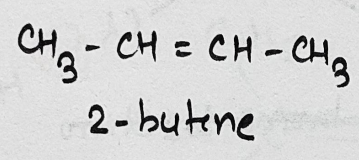 CH₃ - CH = CH - CH₃
2-butene